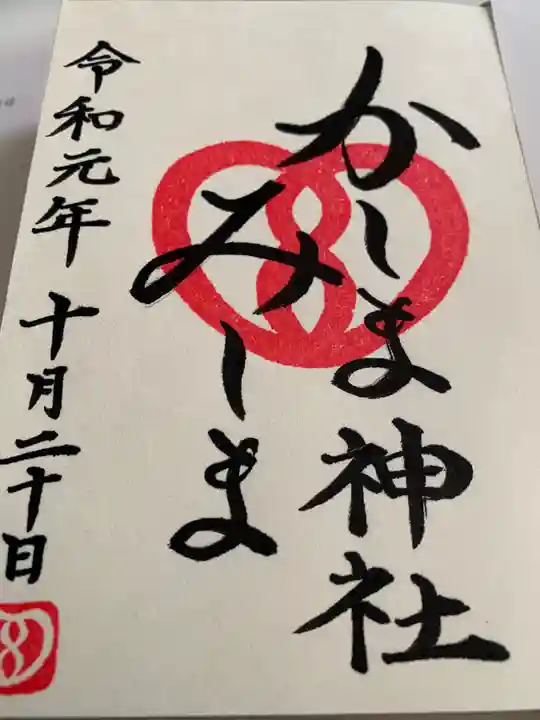 かしま神社
みしま
令和元年 十月二十日